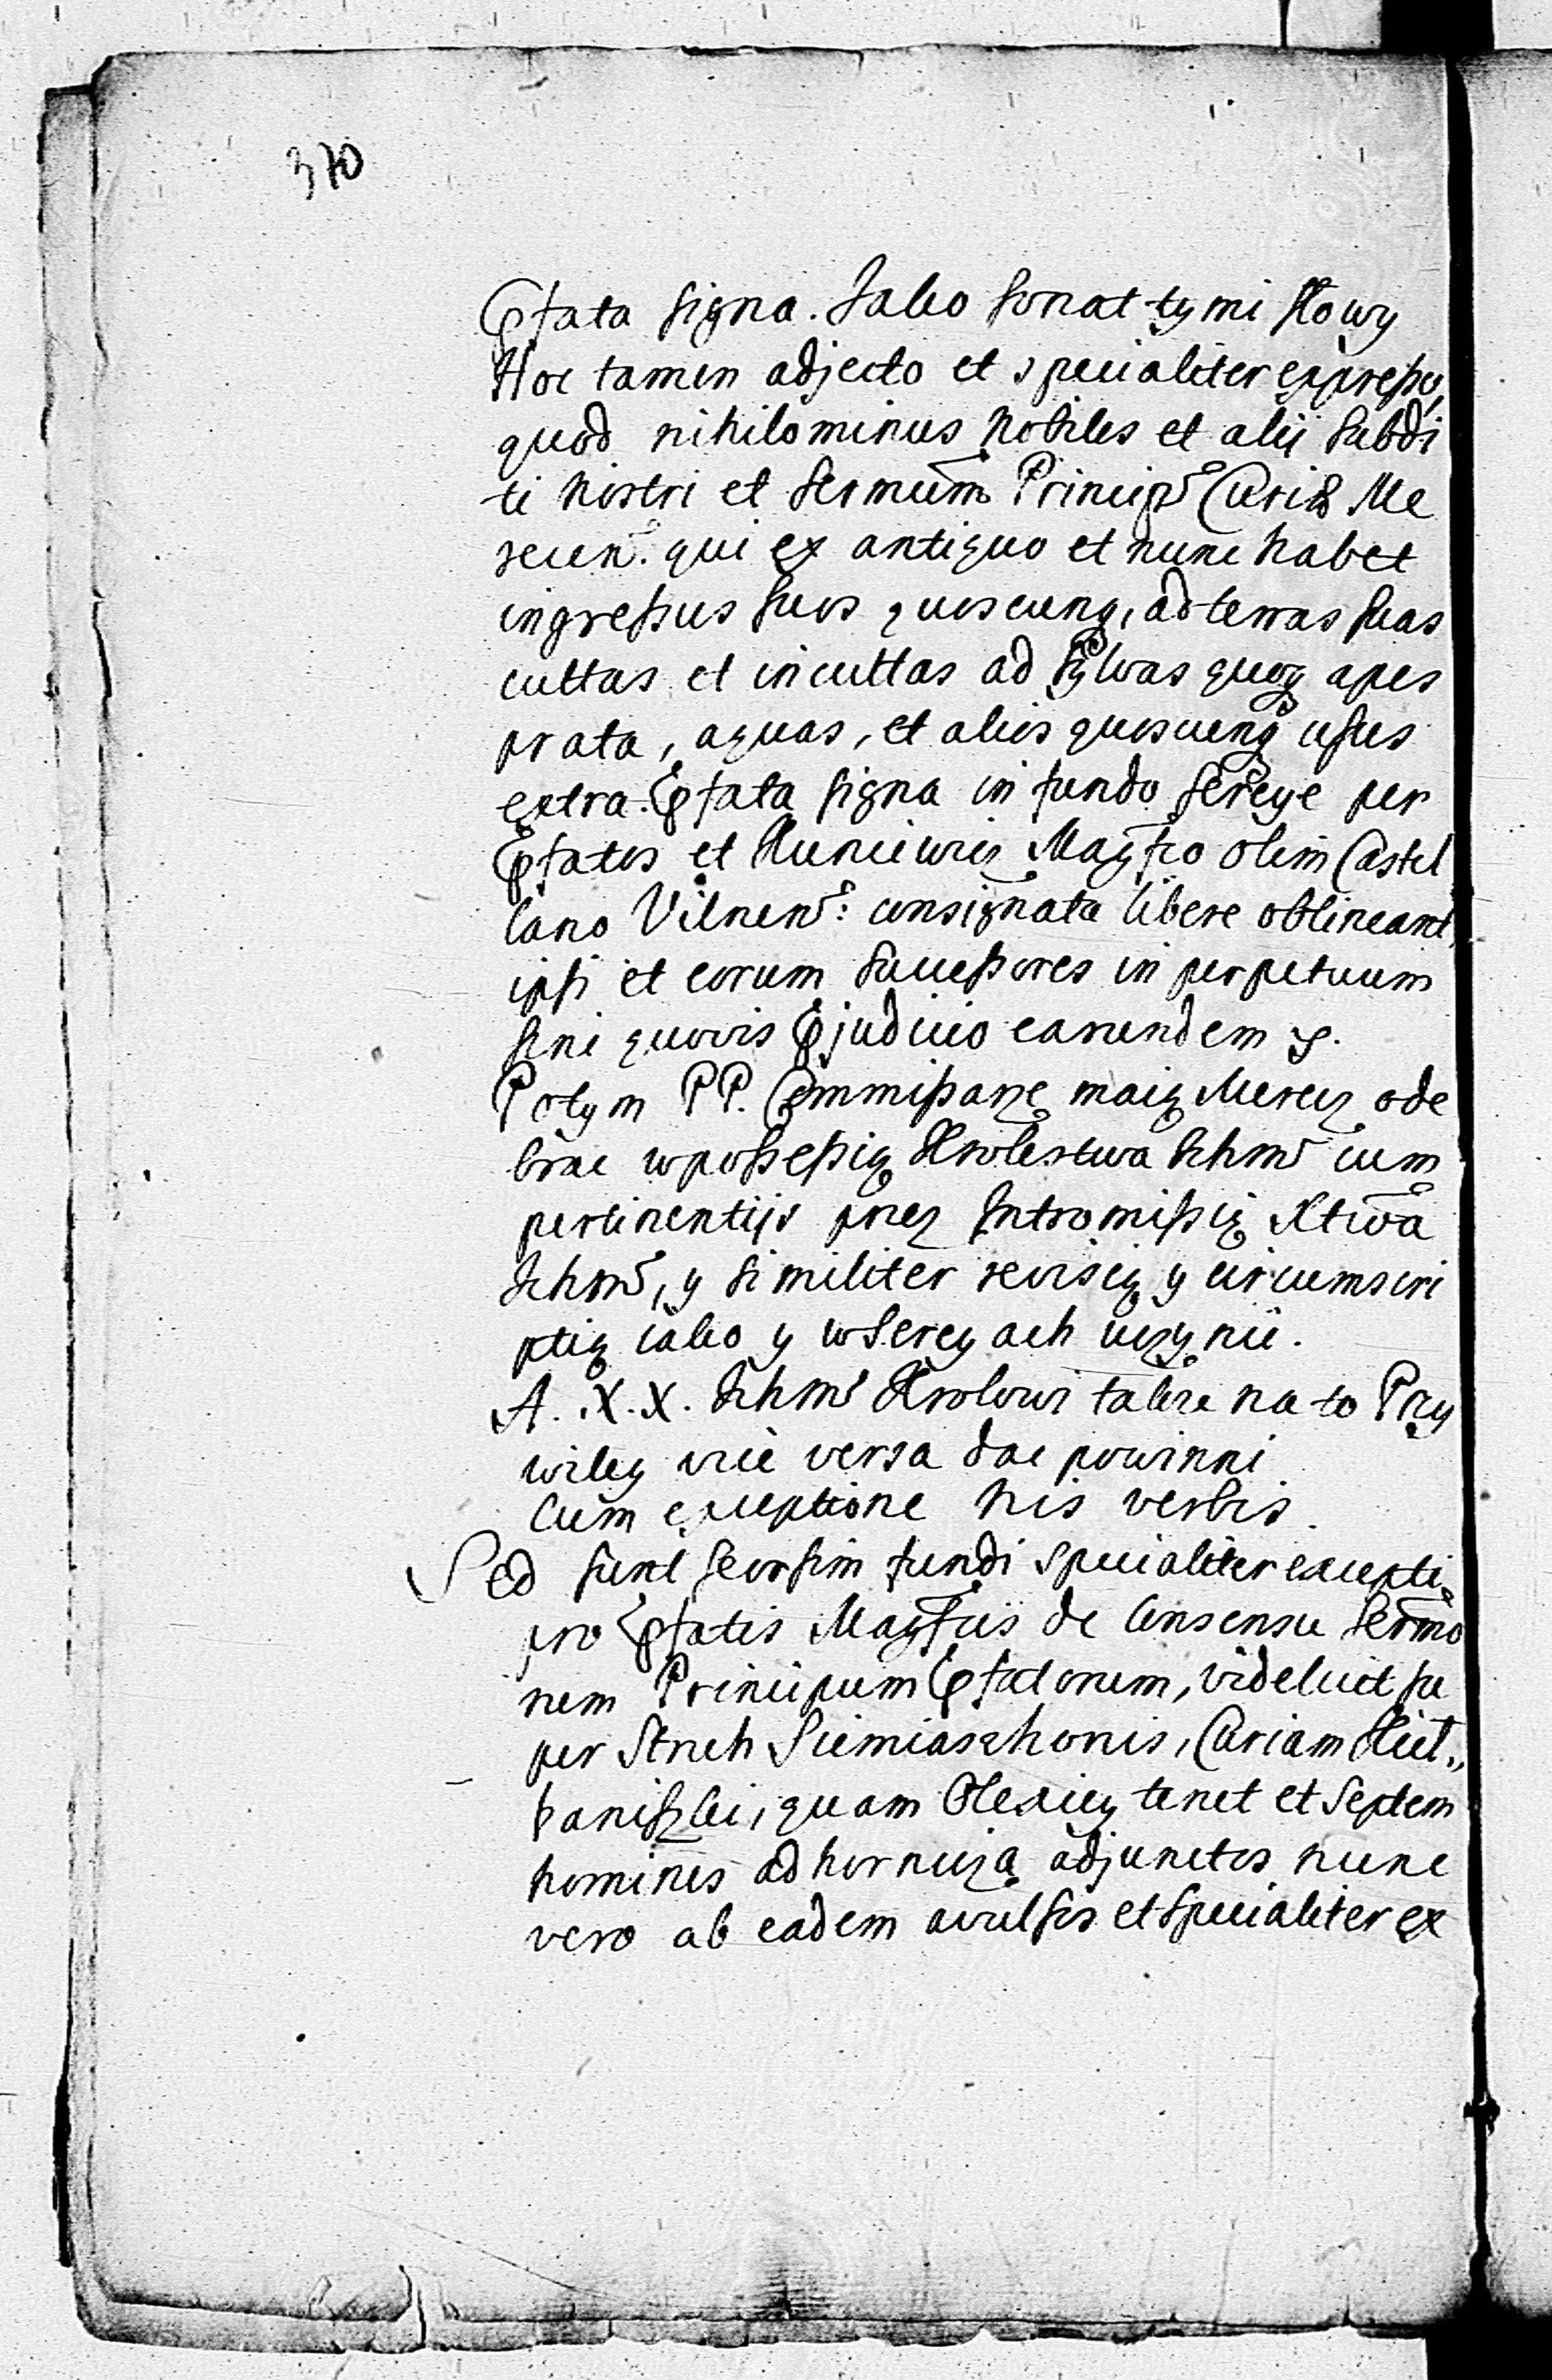 370
Pfata signa. Jako sonat tymi słowy
Hoc tamen adjecto et specialiter expresso,
quod nihilominus nobiles et alij subdi
ti nostri et Sermum Princip Curiæ Me
recen. qui ex antiquo et nunc habet
ingressus suos quoscunq, ad terras suas
cultas et incultas ad sylvas quoq apes
prata, aquas, et alios quoscunq usus
extra Pfata signa in fundo Sereye per
Pfatos et Kuncewicz Magfco olim Castel
lano Vilnen: consignata libere obtineant
ipsi et eorum successores in perpetuum
sine quovis Pjudicio earundem
Potym PP. Commissarze maią Merecz ode
brac w possessią Krolestwa Ichm cum
pertinentijs przez Intromissią Ktwa
Ichm, y similiter revisią y circumscri
ptią iako y w Sereyach uczynic.
A. X.X. Ichm Krolowi takze na to Przy
wiley vice versa dac powinni
Cum exceptione his verbis.
Sed sunt seorsim fundi specialiter excepti
pro Pfatis Magfcis de consensu Sermo
rum Principum Pfatorum, videlicet su
per Strneh Siemiaszkonis, Curiam Kiet„
baniszki, quam Olexiey tenet et septem
homines ad hornicza adjunctos nunc
vero ab eadem avulsos et specialiter ex